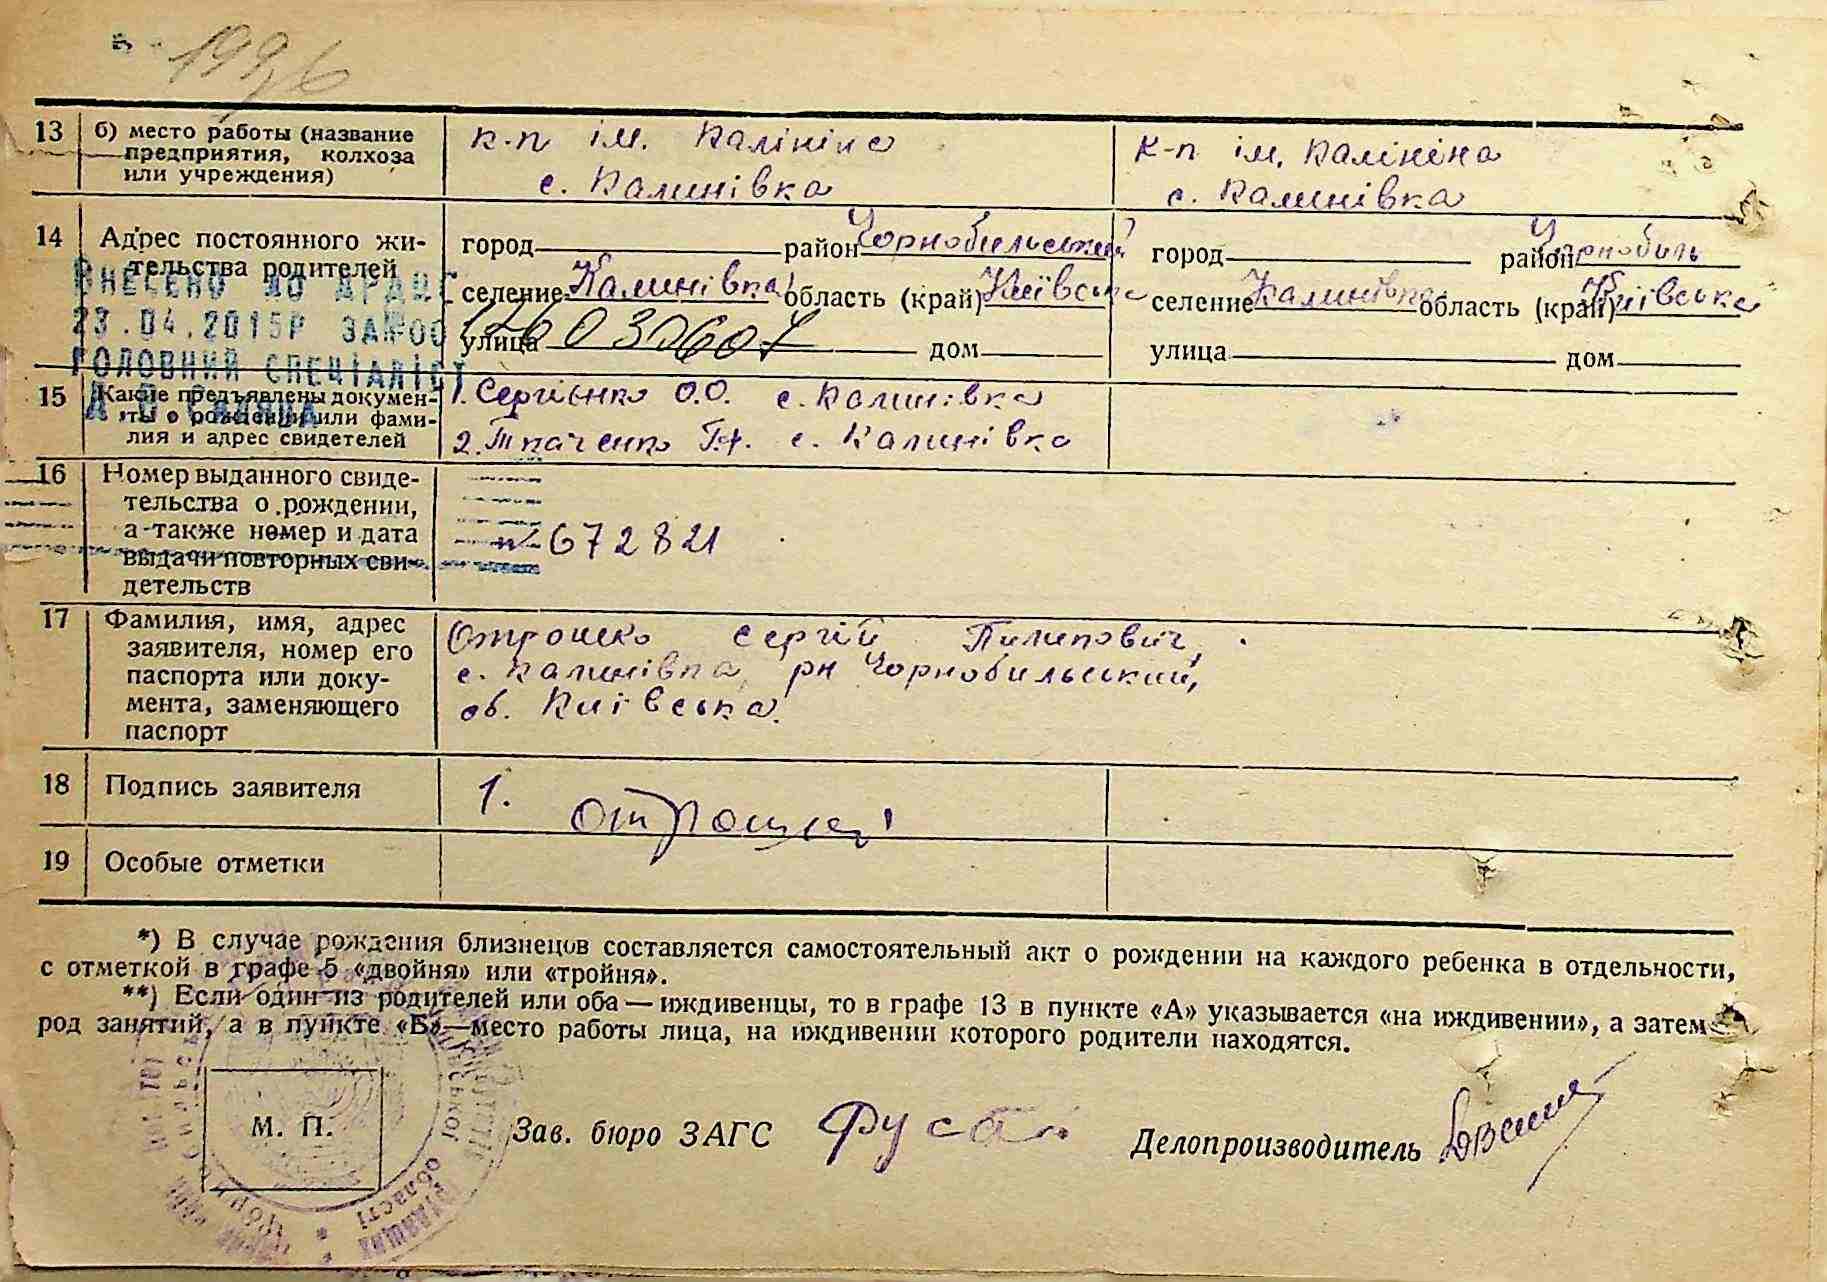 13 б) место работы (название
предприятия, колхоза
или учреждения)
к-п ім. Калініна
с. Калинівка
к-п ім. Калініна
с. Калинівка
14 Адрес постоянного жи-
тельства родителей
город район Чорнобильський
селение Калинівка область (край) Київська
улица дом
город район Чорнобиль
селение Калинівка область (край) Київська
улица дом
ВНЕСЕНО ДО ДРАЦС
23.04.2015Р ЗА №00
1260305607
ГОЛОВНИЙ СПЕЦІАЛІСТ
15 Какие предъявлены докумен-
ты о рождении или фами-
лия и адрес свидетелей
1. Сергієнко О.О. с. Калинівка
2. Ткаченко Г.Ф. с. Калинівка
16 Номер выданного свиде-
тельства о рождении,
а также номер и дата
выдачи повторных сви-
детельств
№ 672821
17 Фамилия, имя, адрес
заявителя, номер его
паспорта или доку-
мента, заменяющего
паспорт
Отрошко Сергій Пилипович,
с. Калинівка, рн Чорнобильський,
об. Київська.
18 Подпись заявителя
1.
19 Особые отметки
*) В случае рождения близнецов составляется самостоятельный акт о рождении на каждого ребенка в отдельности,
с отметкой в графе 5 «двойня» или «тройня».
**) Если один из родителей или оба — иждивенцы, то в графе 13 в пункте «А» указывается «на иждивении», а затем
род занятий, а в пункте «Б» — место работы лица, на иждивении которого родители находятся.
М. П.
Зав. бюро ЗАГС
Делопроизводитель